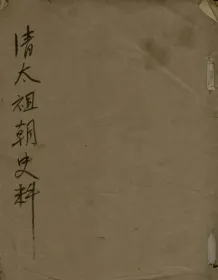 清太祖朝史料